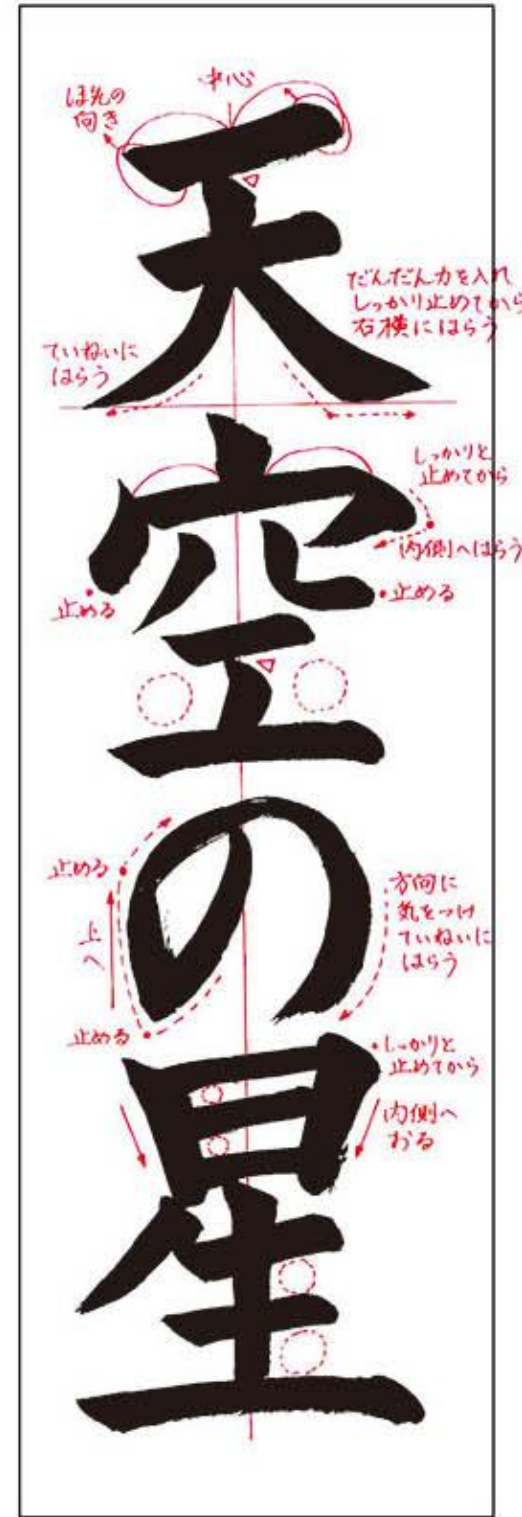 天空の星
中心
ほ先の
向き
だんだん力を入れ
しっかり止めてから
右横にはらう
ていねいに
はらう
しっかりと
止めてから
内側へはらう
止める
止める
止める
上へ
止める
方向に
気をつけ
ていねいに
はらう
しっかりと
止めてから
内側へ
おる